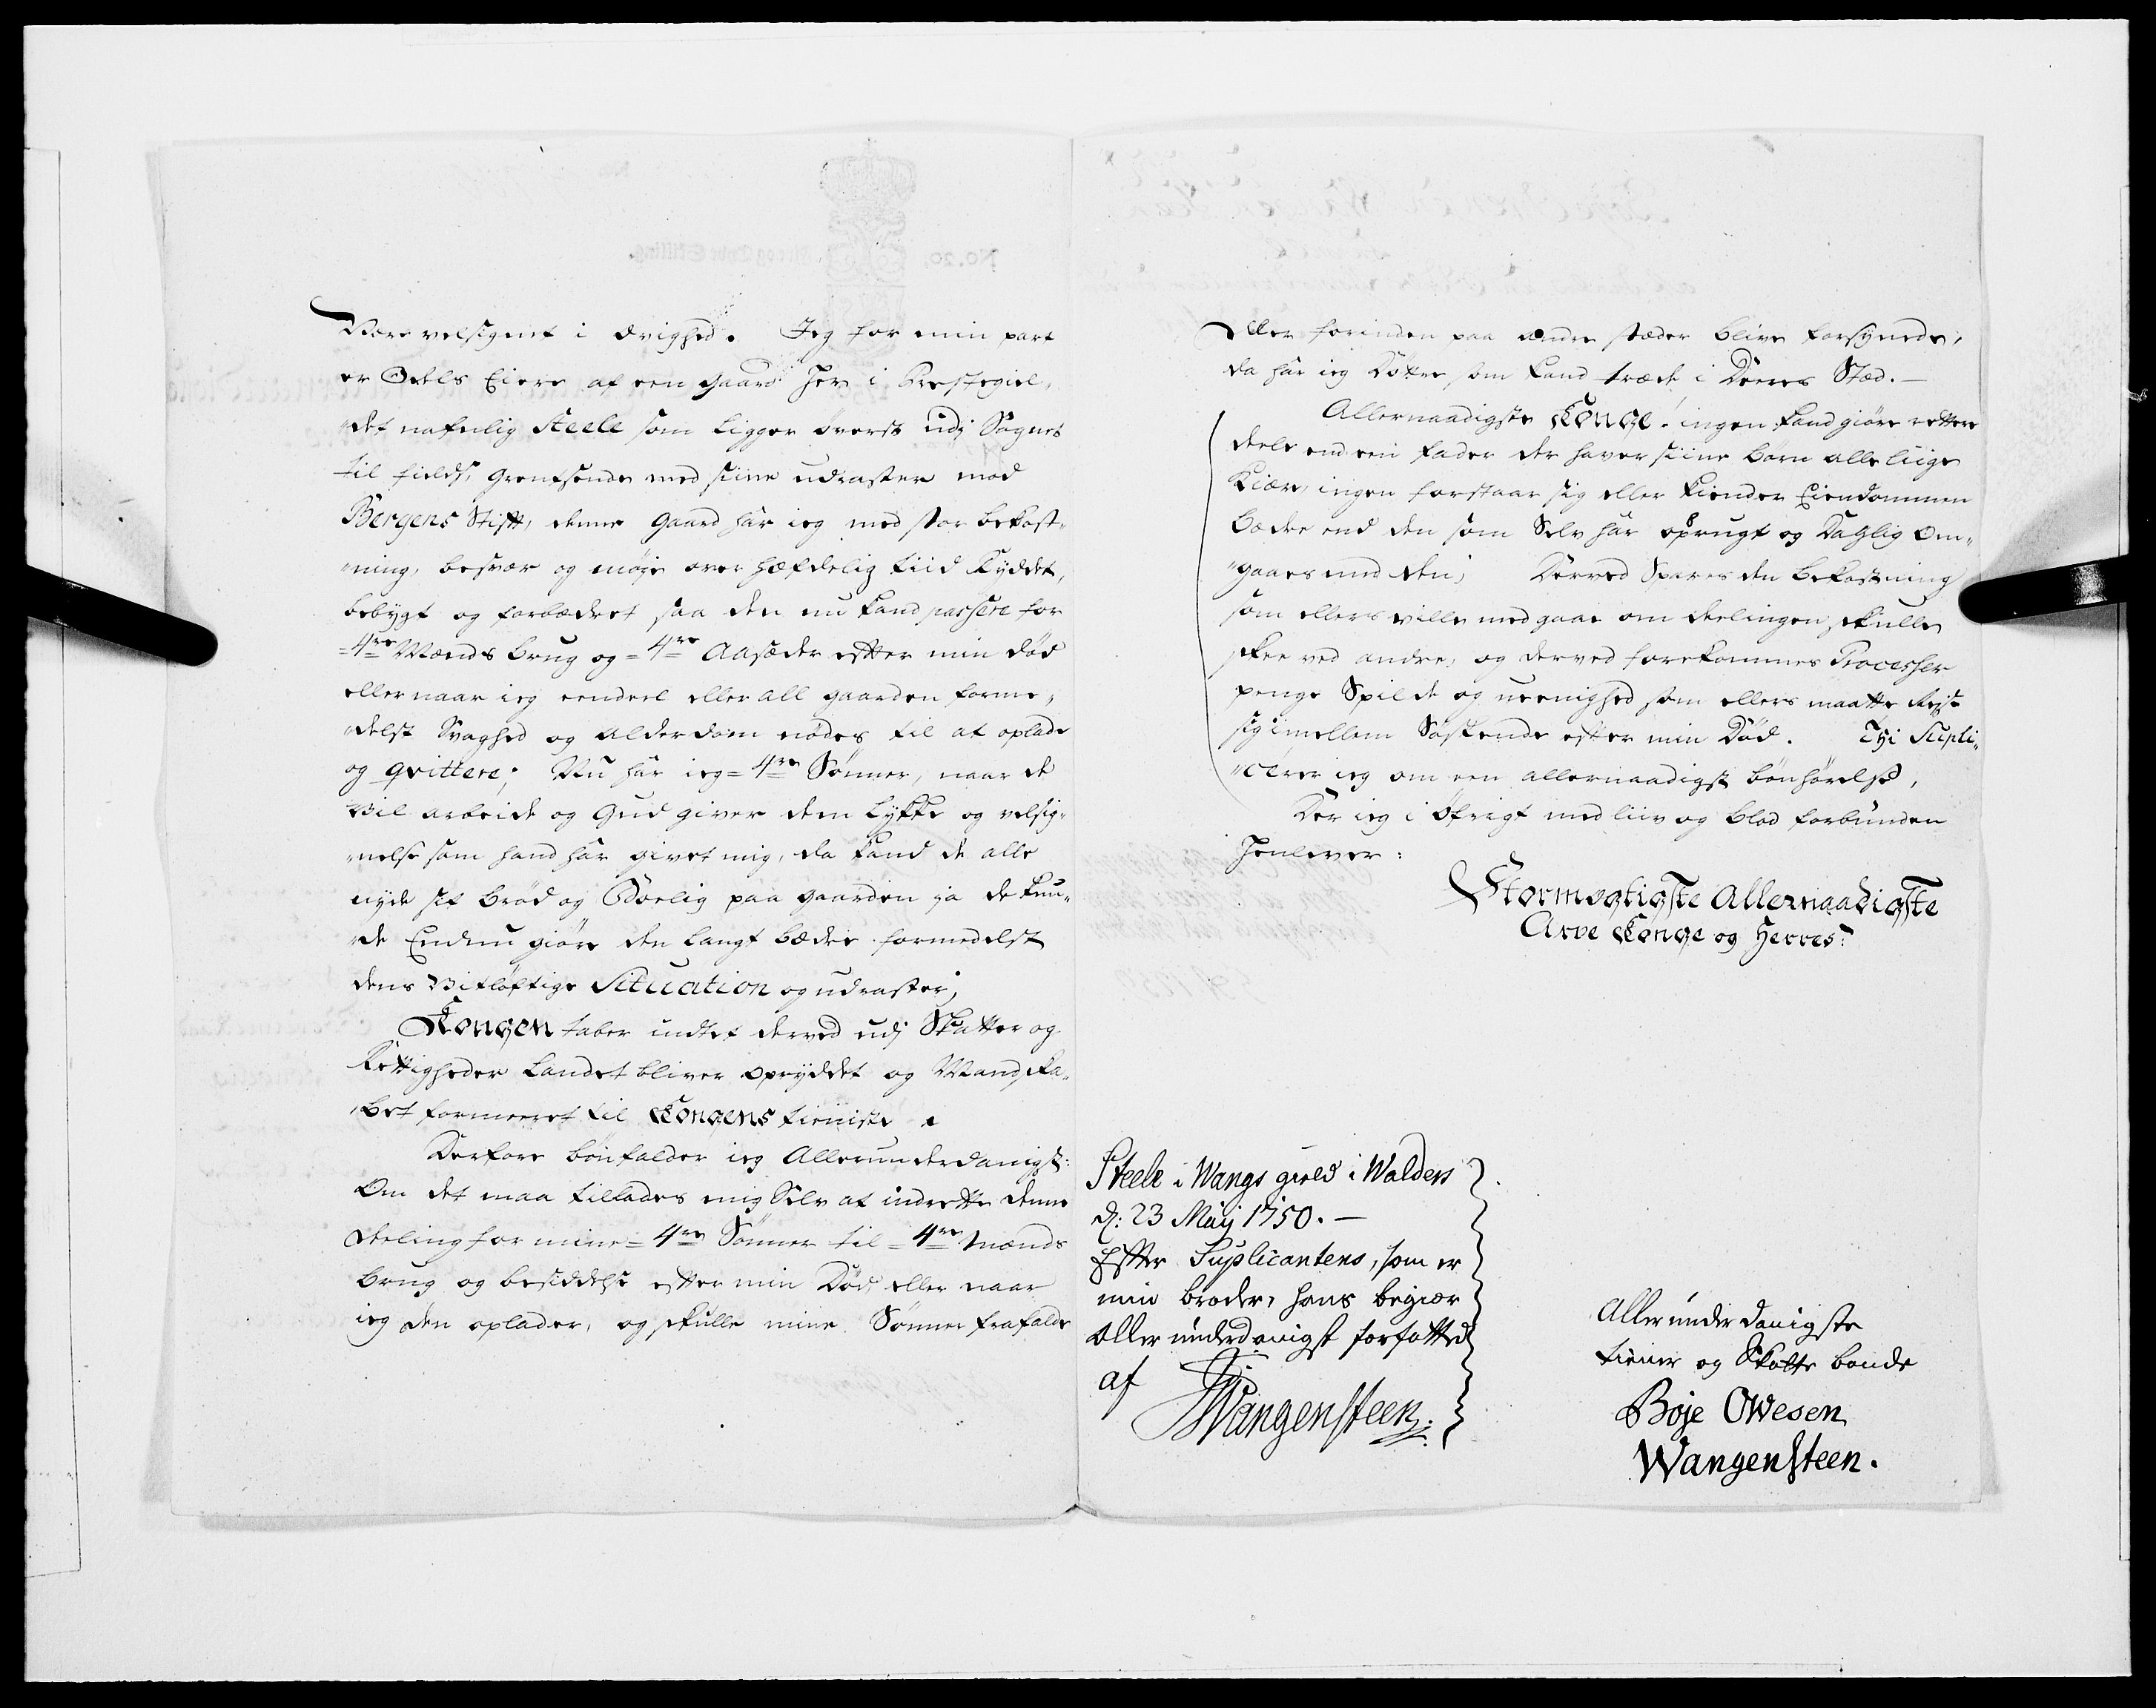 Være velsignet i Ævighed. Jeg for min part
er Odels Eiere af een gaard her i Prestegiel,
det nafnlig Steele som ligger øverst udj Sognet
til fields, grentsende med siine udraster mod
Bergens Stift, denne gaard har ieg med stor bekost-
ning, besvær og møye over hæfdelig tiid Ryddet,
bebygt og forbædret saa den nu kand passere for
4re Mænds brug og 4re Aasæder efter min død
eller naar ieg eendeel eller all gaarden forme-
delst Svaghed og alderdom nødes til at oplade
og qvittere; Nu har ieg 4re Sønner, naar de
vil arbeide og Gud giver dem Lykke og velsig-
nelse som hand har givet mig, da kand de alle
nyde sit brød og paa gaarden ja de kun-
de Endnu giøre den langt bædre formedelst
dens vitløftige Situation og udraster;
Kongen taber indtet derved udj Skatter og
Rettigheder Landet bliver opryddet og Mandska-
bet formeeret til Kongens tieniste.
Derfore bønfalder ieg Allerunderdanigst:
Om det maa tillades mig Selv at indrette denne
deeling for mine 4re Sønner til 4re mænds
brug og besiddelse efter min Død, eller naar
ieg den oplader, og skulle mine Sønner frafalde
Eller forinden paa andre stæder blive forsynede,
da har ieg Døttre som kand træde i Deeres Stæd.
Allernaadigste Konge! ingen kand giøre rettere
deele end een fader der haver siine børn alle liige
Kiær, ingen forstaar sig eller kiender Eiendommen
bædre end den som Selv har oprugt og Daglig Om-
gaaes med den; Derved Spares den bekostning
som ellers ville medgaae om deelingen skulle
skee ved andre, og derved forekommes Processer
penge Spilde og ueenighed som ellers maatte Reist
sig imellem Søskende efter min Død. Thi Supli-
cerer ieg om een allernaadigst bønhørelse,
Der ieg i øfrigt med liiv og blod forbunden
henlever:
Stormegtigste Allernaadigste
Arve Konge og Herres:
Steele i Wangs gield i Walders
d: 23 Maij 1750.
Efter Suplicantens, som er
min broder, hans begiær
aller underdanigst forfatted
af
Wangensteen.
Allerunderdanigste
tiener og Skatte bonde
Boje Owesen
Wangensteen.